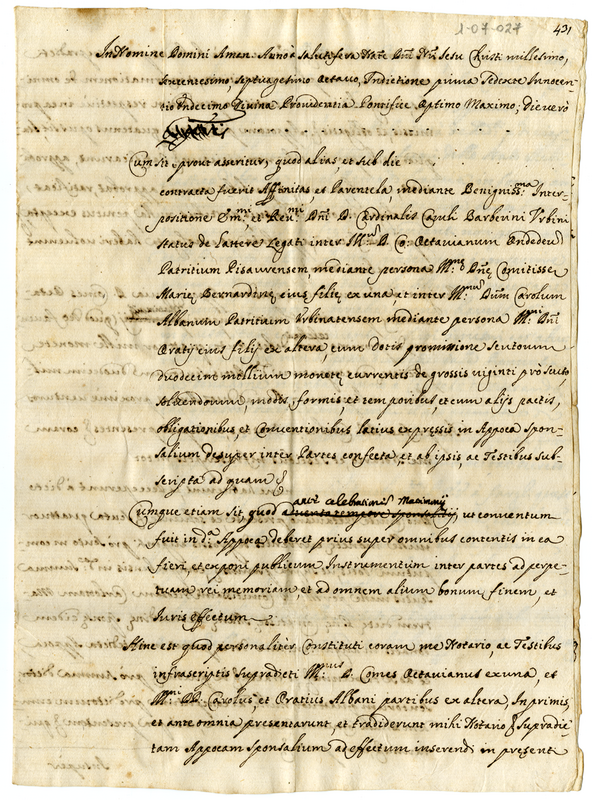 1-07-027
431
In Nomine Domini Amen. Anno à salutifera Natte Dni Nri Jesu Christi millesimo,
sexcentesimo, septuagesimo Octavo, Indictione prima Sedente Innocen-
tio Undecimo Divina Providentia Pontifice Optimo Maximo; Die verò
Cum sit, prout asseritur, quod alias et sub die
contracta fuerit Affinitas, et Parentela, mediante Benigniss:ma Inter-
positione Emi, et Revmi Dni D. Cardinalis Caroli Barberini Urbini
status de Lattere Legati inter Illm D. Co: Octavianum Ondedeu
Patritium Pisaurensem, mediante persona Illme Dnę Comitissę
Marię Bernardinę eius filię ex una, et inter Illm Dum Carolum
Albanum Patritium Urbinatensem mediante persona Illmi Dni
Oratij eius filij ex altera cum Dotis promissione scutorum
duodecim millium monetę currentis de grossis viginti prò scuto,
solvendorum, modis, formis, et temporibus, et cum alijs pactis,
obligationibus, et Conventionibus latius expressis in Appoca Spon-
salium desuper inter Partes confecta, et ab ipsis, ac Testibus sub-
scripta ad quam &
ante celebrationem Matrimonij
Cumque etiam sit, quod ut conventum
fuit in da Appoca deberet prius super omnibus contentis in ea
fieri, et exponi publicum Instrumentum inter partes ad perpe-
tuam rei memoriam, et ad omnem alium bonum finem, et
Iuris effectum
Hinc est quod personaliter Constituti coram me Notario, ac Testibus
infrascriptis supradicti D. Comes Octavianus ex una, et
Illmi DD. Carolus, et Oratius Albani partibus ex altera, In primis,
et ante omnia presentarunt, et tradiderunt mihi Notario supradic-
tam Appocam sponsalium ad effectum inserendi in pręsenti